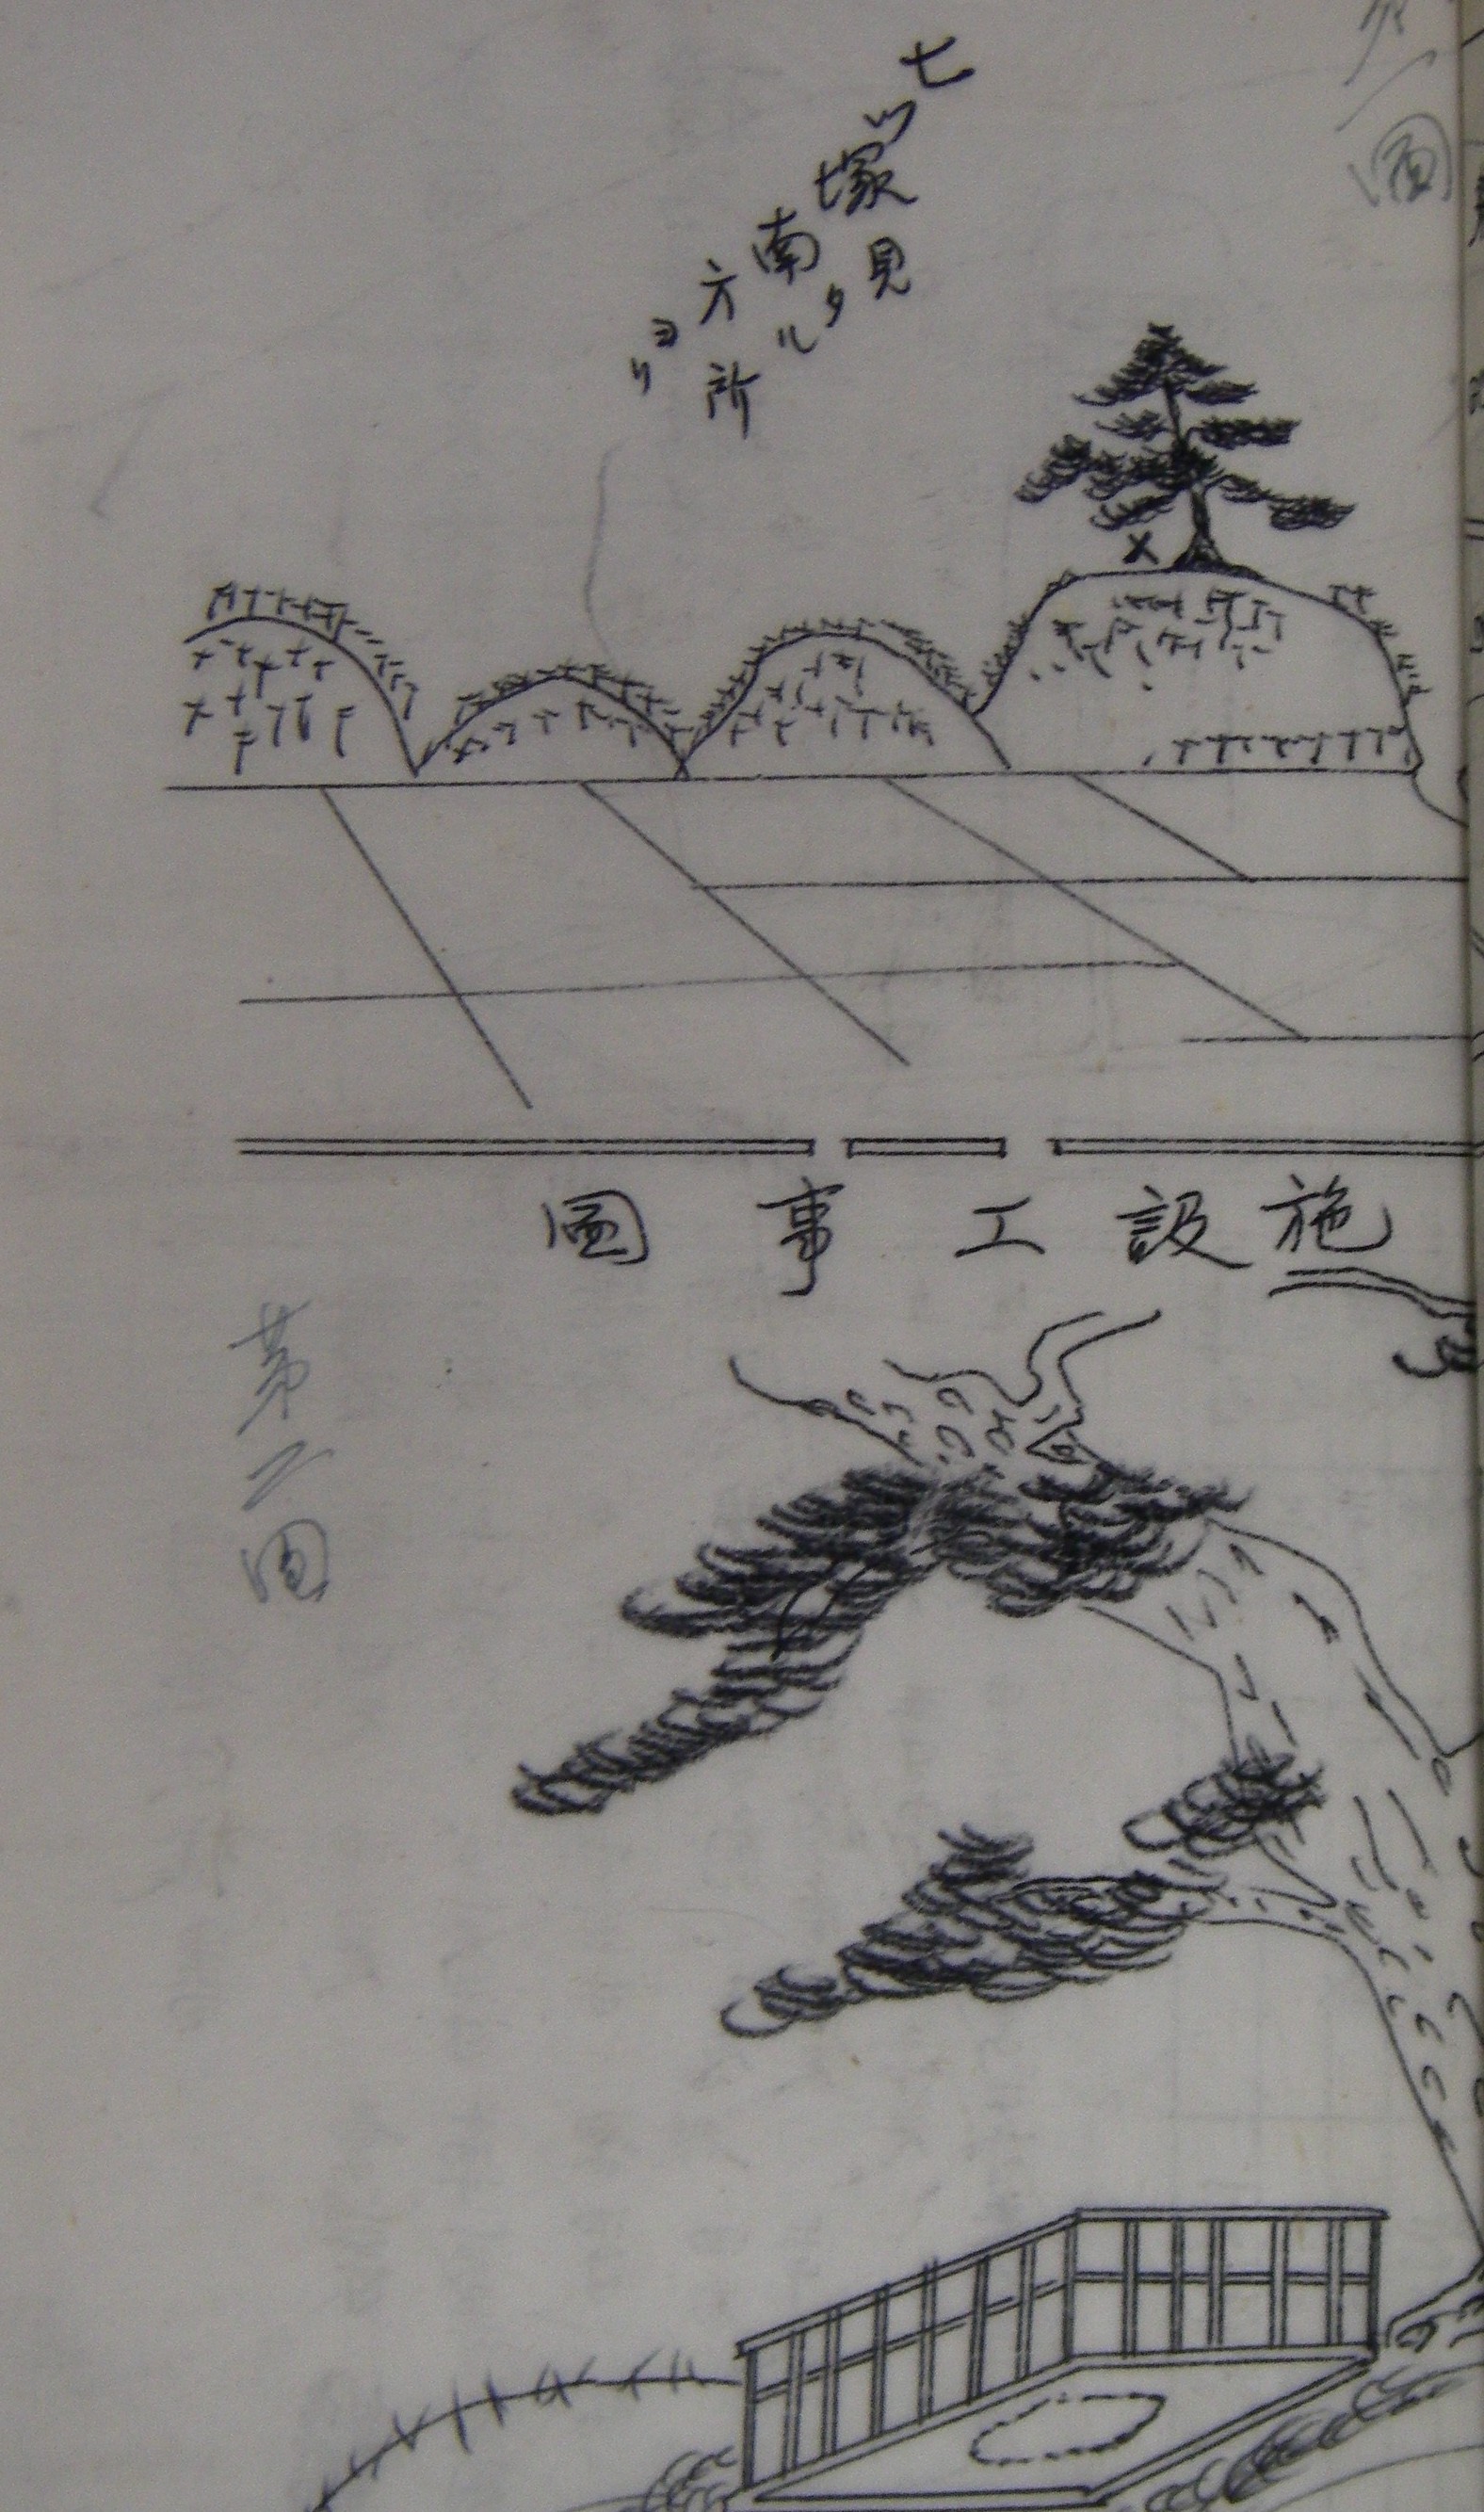 七ツ塚南方ヨリ
見タル所
施設工事図
第二図